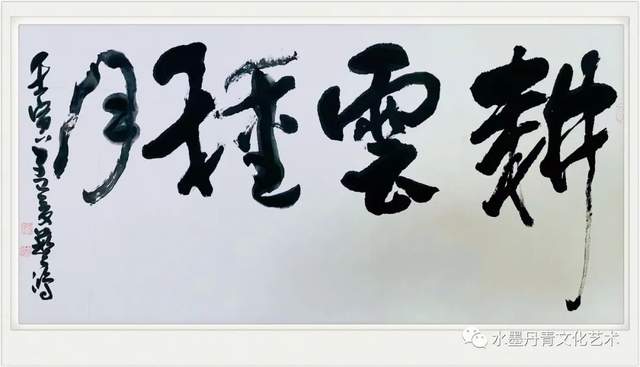 耕雲種月
壬寅
水墨丹青文化艺术